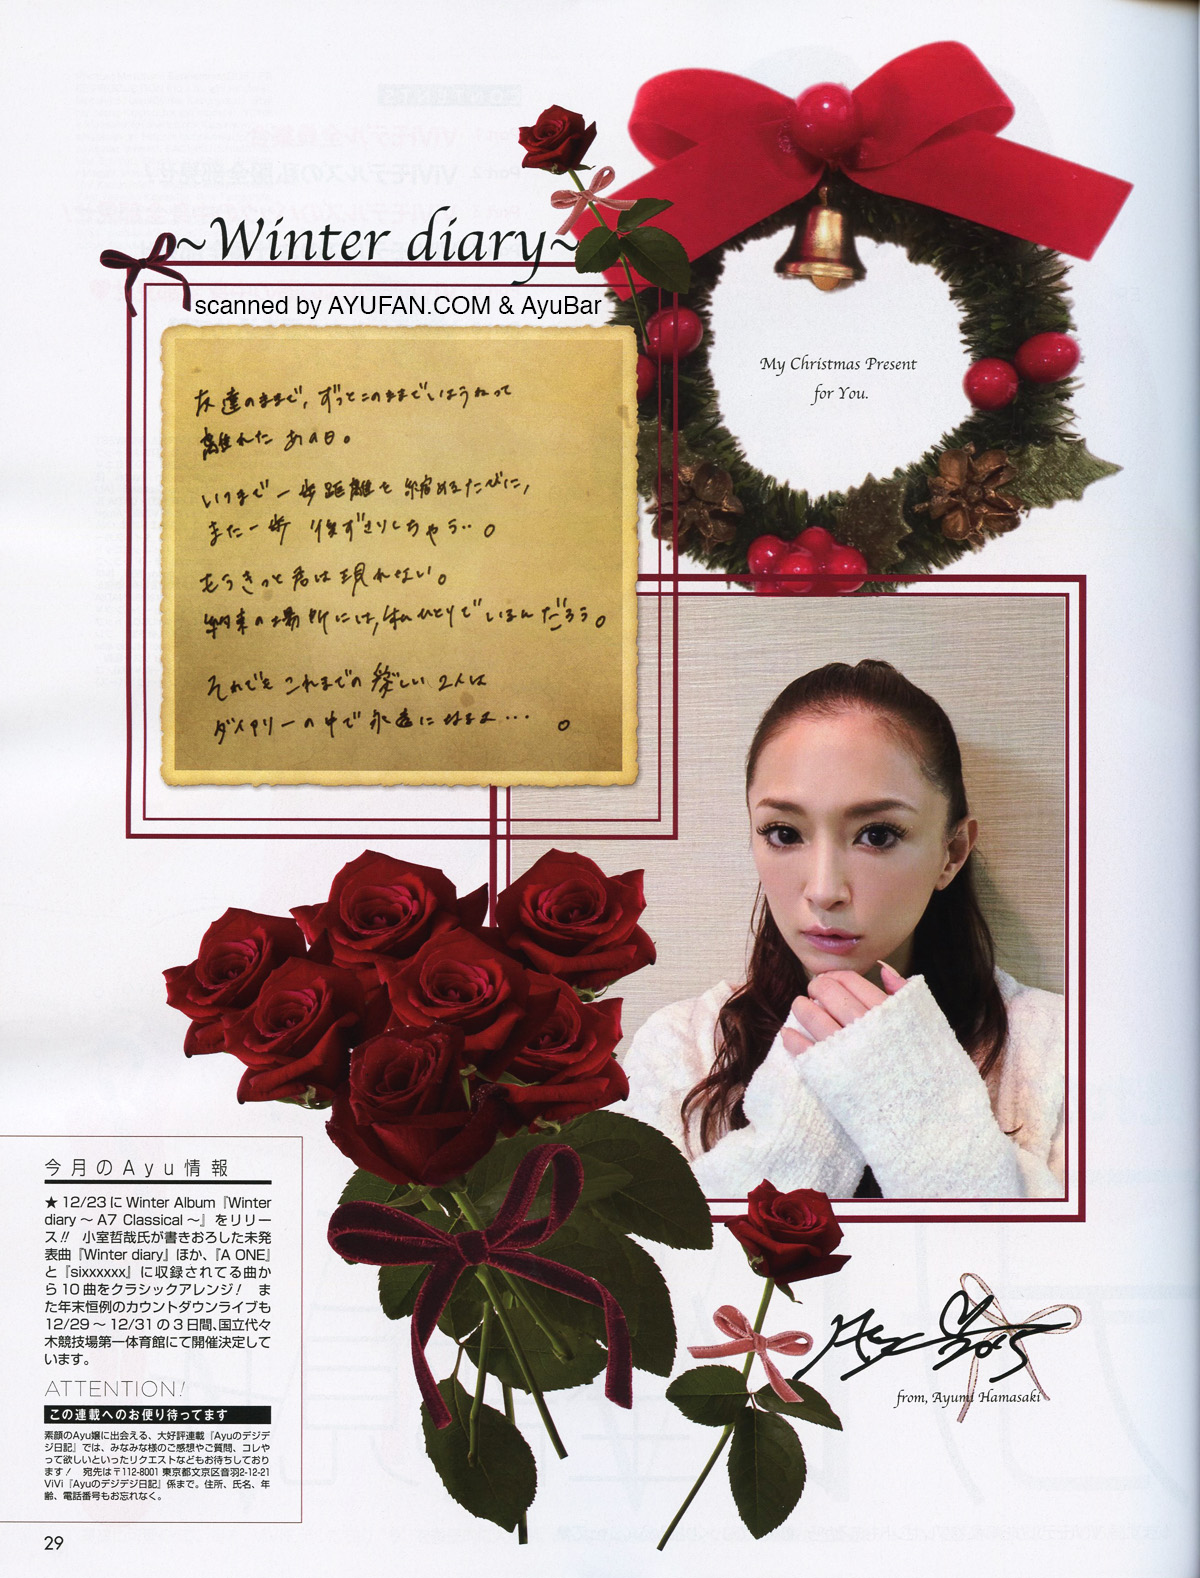 ~Winter diary~
scanned by AYUFAN.COM & AyuBar
友達のままで、ずっとこのままでいようねって
離れた あの日。
いつまで 一歩距離を 縮めるたびに、
また一歩 後ずさりしちゃう‥。
もうきっと 君は 現れない。
約束の場所には、私ひとりで いるんだろう。
それでも これまでの 楽しい 2人は
ダイアリーの中で 永遠に
My Christmas Present
for You.
今月のAyu情報
★12/23にWinter Album『Winter
diary ～ A7 Classical ～』をリリー
ス!! 小室哲哉氏が書きおろした未発
表曲『Winter diary』ほか、『A ONE』
と『sixxxxxx』に収録されてる曲か
ら10曲をクラシックアレンジ! ま
た年末恒例のカウントダウンライブも
12/29～12/31の3日間、国立代々
木競技場第一体育館にて開催決定して
います。
ATTENTION!
この連載へのお便り待ってます
素顔のAyu嬢に出会える、大好評連載『Ayuのデジデ
ジ日記』では、みなみな様のご感想やご質問、コレや
って欲しいといったリクエストなどもお待ちしており
ます! 宛先は〒112-8001 東京都文京区音羽2-12-21
ViVi『Ayuのデジデジ日記』係まで。住所、氏名、年
齢、電話番号もお忘れなく。
2015
from, Ayumi Hamasaki
29